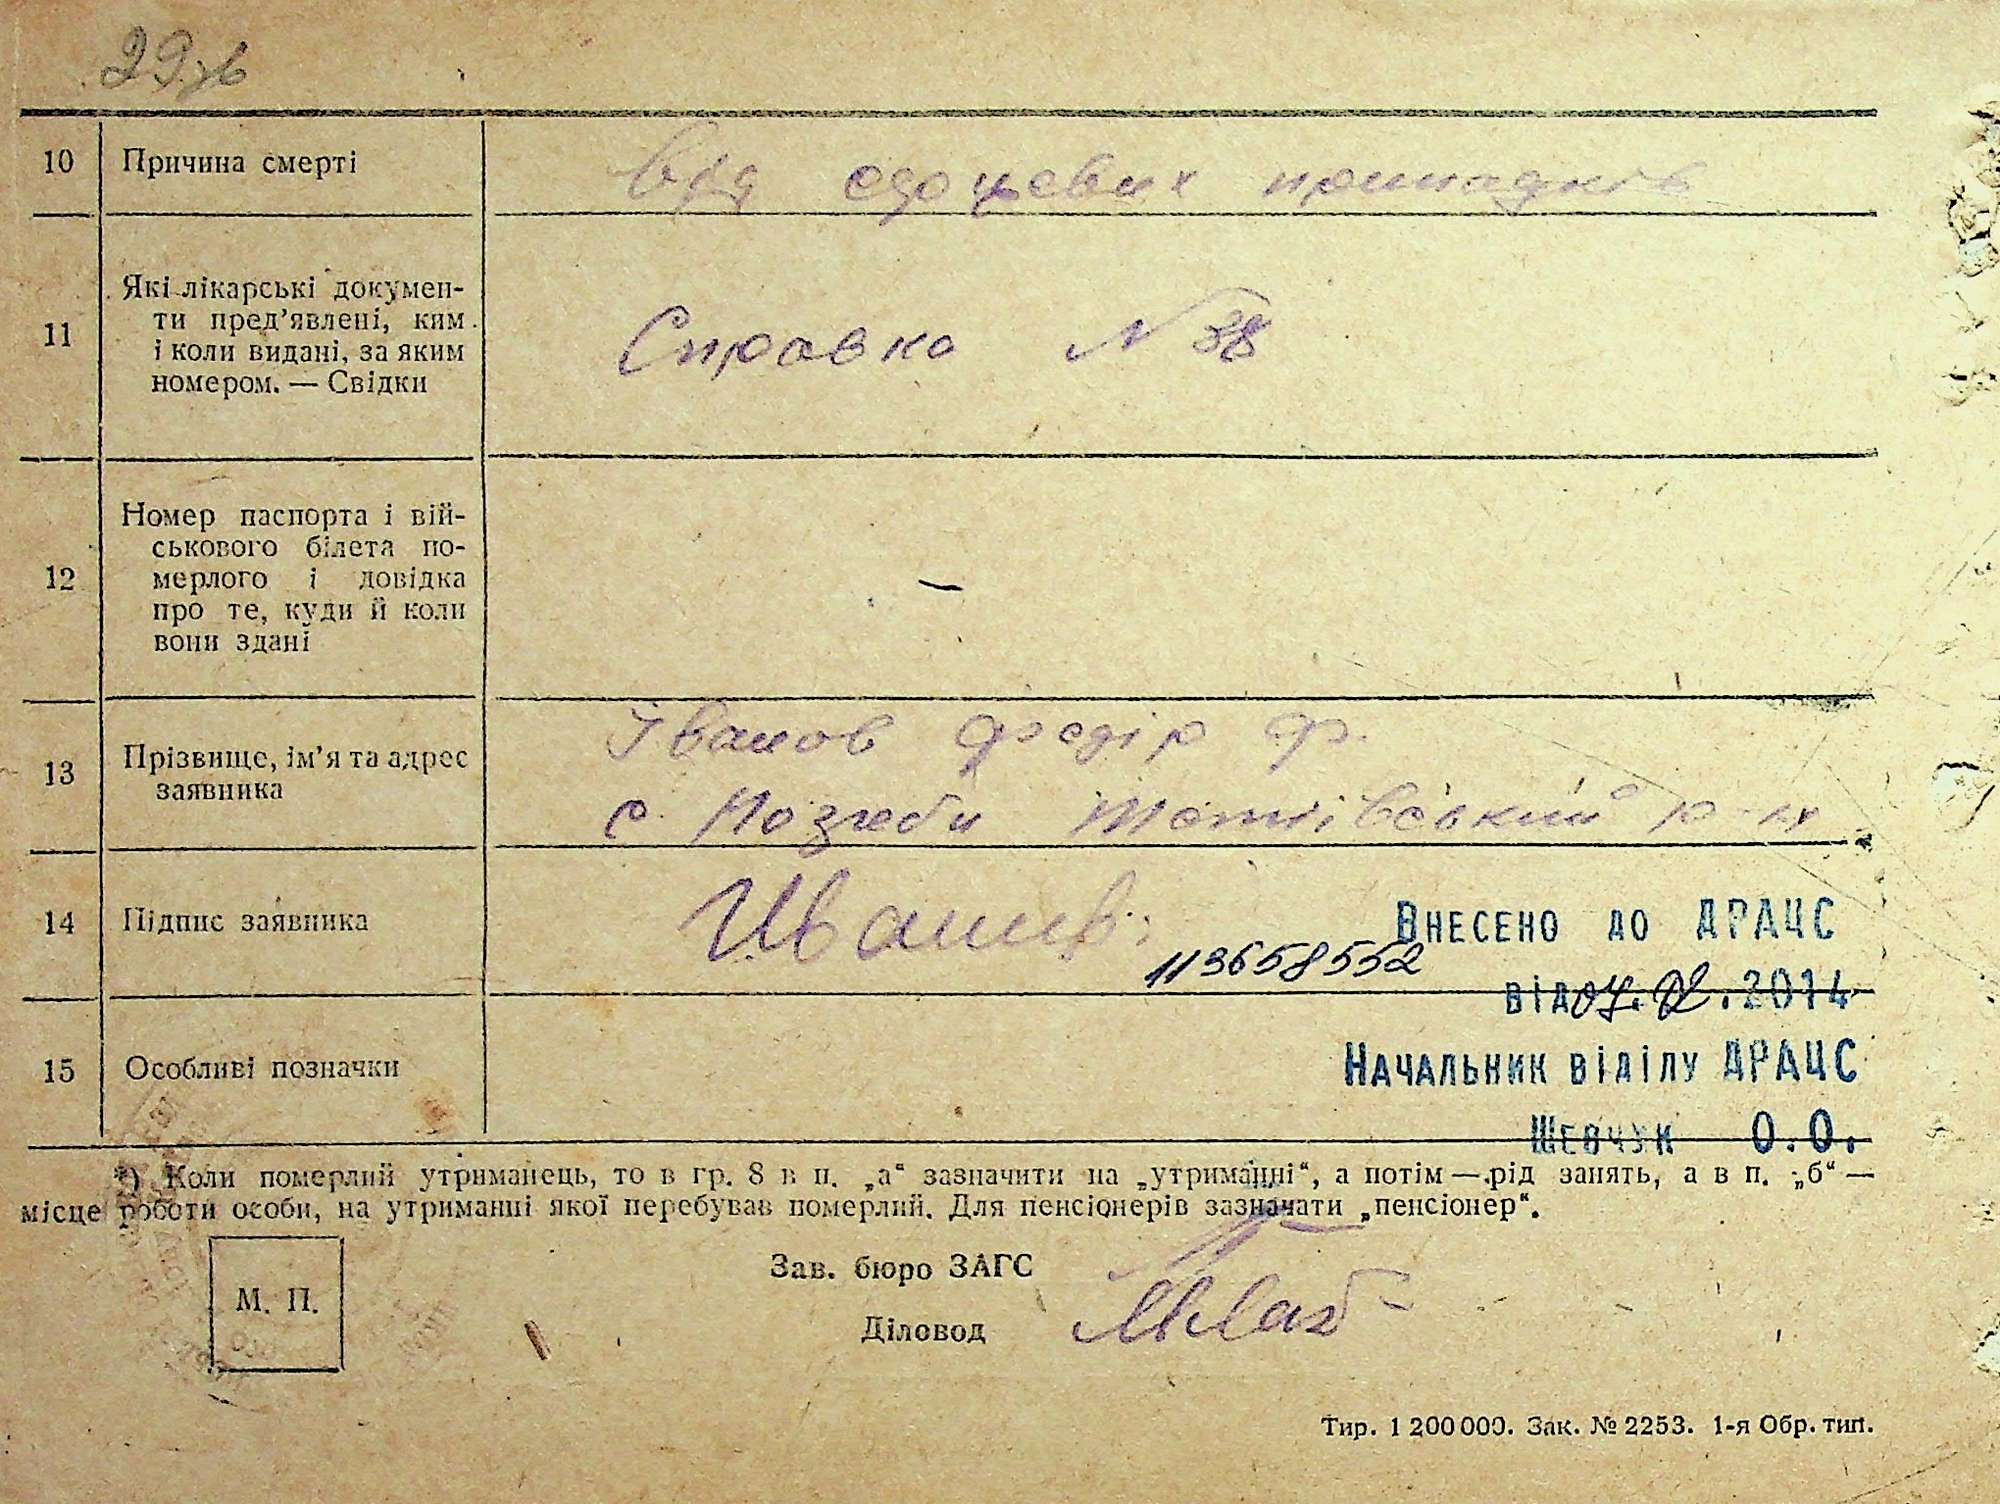 29зв
10 Причина смерті
від сердцевих припадків
11 Які лікарські докумен-
ти пред’явлені, ким
і коли видані, за яким
номером. — Свідки
Справка N 38
12 Номер паспорта і вій-
ськового білета по-
мерлого і довідка
про те, куди й коли
вони здані
–
13 Прізвище, ім’я та адрес
заявника
Іванов Федір Ф.
с.
14 Підпис заявника
ВНЕСЕНО ДО ДРАЦС
113658552
від 04.02.2014
НАЧАЛЬНИК ВІДІЛУ ДРАЦС
15 Особливі позначки
ШЕВЧУК О.О.
*) Коли померлий утриманець, то в гр. 8 в п. „а“ зазначити на „утриманні“, а потім — рід занять, а в п. „б“ —
місце роботи особи, на утриманні якої перебував померлий. Для пенсіонерів зазначати „пенсіонер“.
Зав. бюро ЗАГС
М. П.
Діловод
Тир. 1 200 000. Зак. № 2253. 1-я Обр. тип.